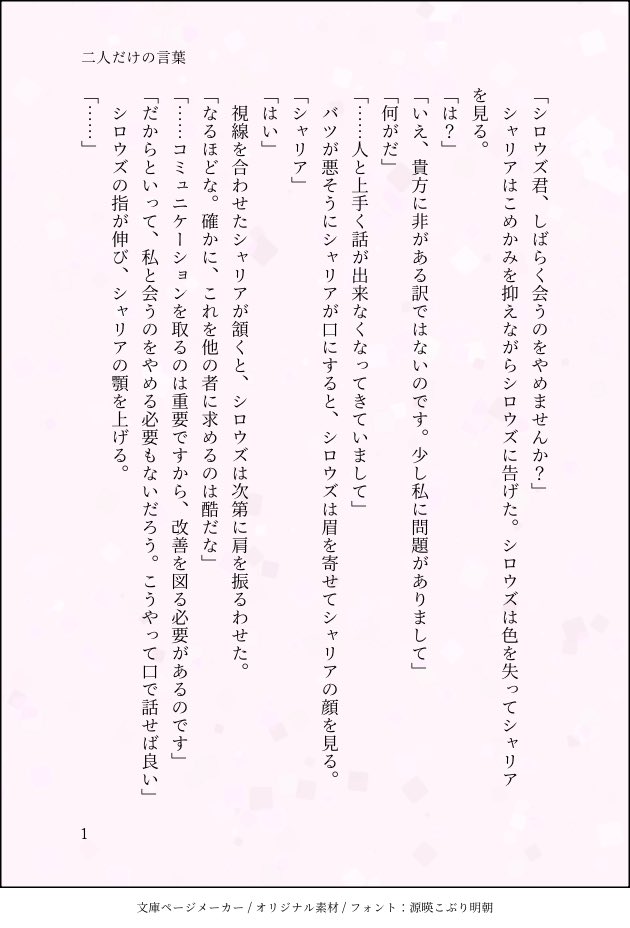 二人だけの言葉
「シロウズ君、しばらく会うのをやめませんか？」
　シャリアはこめかみを抑えながらシロウズに告げた。シロウズは色を失ってシャリア
を見る。
「は？」
「いえ、貴方に非がある訳ではないのです。少し私に問題がありまして」
「何がだ」
「……人と上手く話が出来なくなってきていまして」
　バツが悪そうにシャリアが口にすると、シロウズは眉を寄せてシャリアの顔を見る。
「シャリア」
「はい」
　視線を合わせたシャリアが頷くと、シロウズは次第に肩を振るわせた。
「なるほどな。確かに、これを他の者に求めるのは酷だな」
「……コミュニケーションを取るのは重要ですから、改善を図る必要があるのです」
「だからといって、私と会うのをやめる必要もないだろう。こうやって口で話せば良い」
　シロウズの指が伸び、シャリアの顎を上げる。
「……」
1
文庫ページメーカー / オリジナル素材 / フォント：源暎こぶり明朝